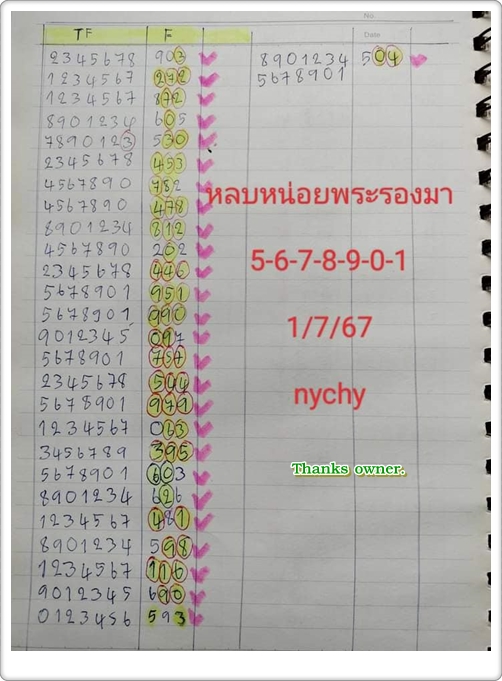 No.
TF F
Date
2345678 903
1234567 272
1234567 872
8901234 605
7890123 530
2345678 453
4567890 782
4567890 478
8901234 812
4567890 202
2345678 446
5678901 951
5678901 990
9012345 097
5678901 757
2345678 544
5678901 979
1234567 063
3456789 395
5678901 603
8901234 626
1234567 481
8901234 598
1234567 116
9012345 690
0123456 593
8901234 504
5678901
หลบหน่อยพระรองมา
5-6-7-8-9-0-1
1/7/67
nychy
Thanks owner.